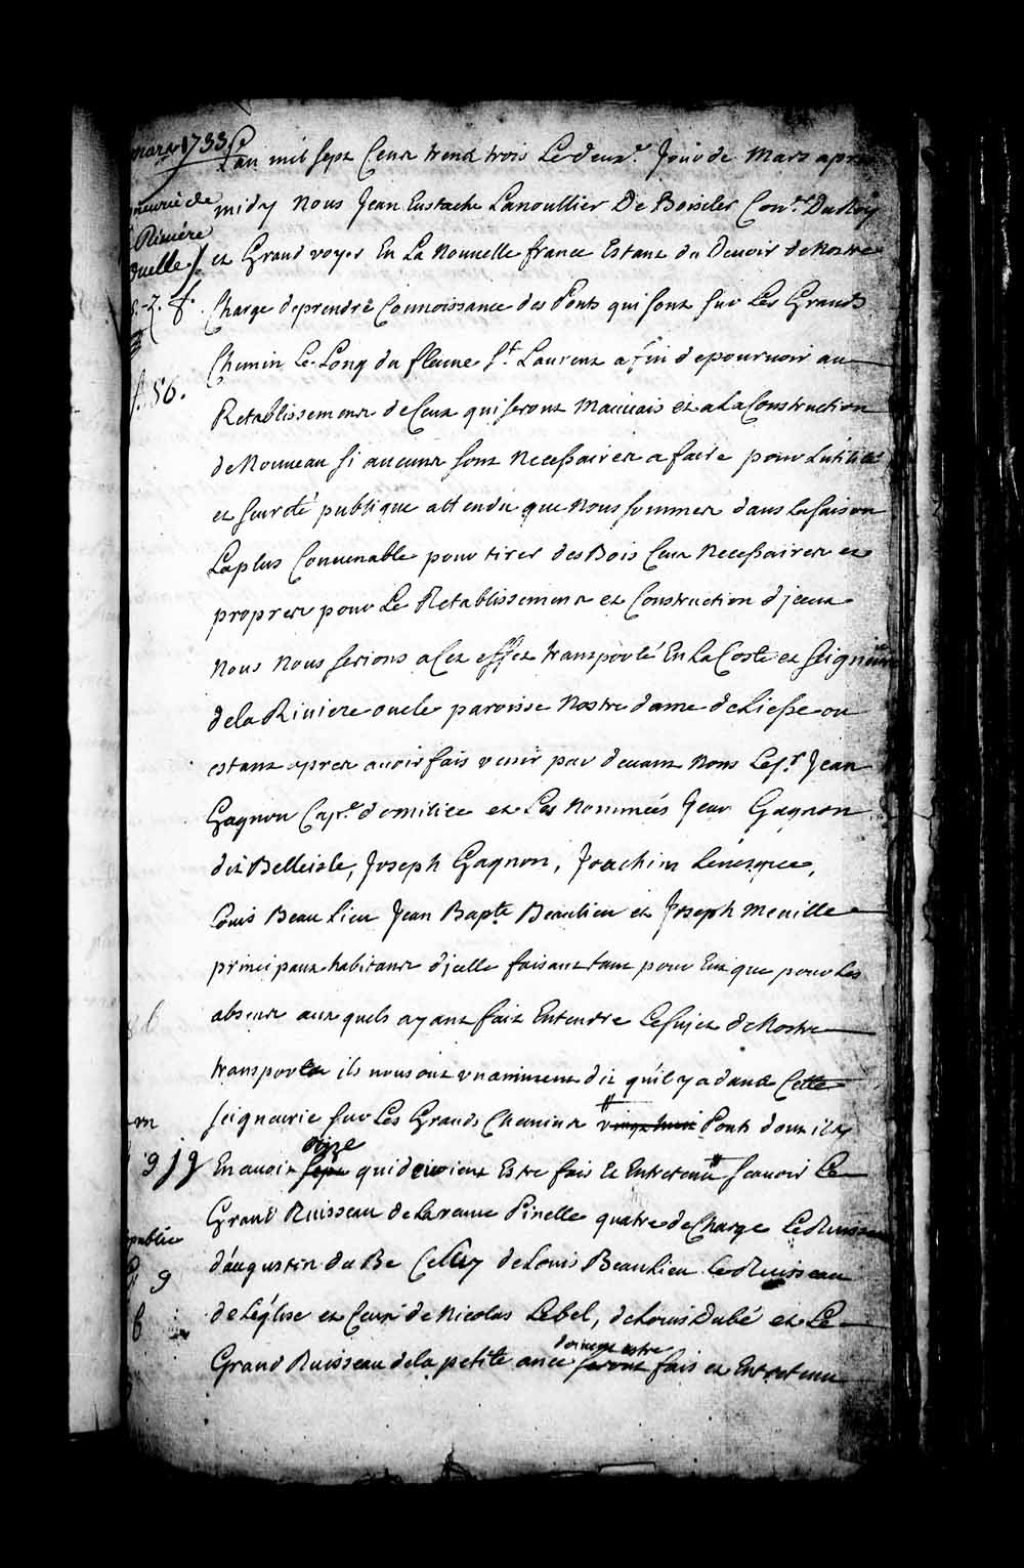 mars 1733
Lan mil sept Cens trend trois Le deuxe. Jour de Mars apres
midy Nous Jean Eustache Lanoullier De Boiscler Conser. Du Roy
et Grand voyer En La Nouvelle france Estant du Devoir de Nostre
Charge de prendre Connoissance des Ponts qui sont sur Les Grands
Chemin Le Long du fleuve St. Laurent afin de pourvoir au
Retablissement de Ceux qui seront Mauvais et a La Construction
de Nouveau si aucuns sont Necessaires a faire pour Lutilité
et seureté publique attendu que Nous sommes dans La saison
La plus Convenable pour tirer des Bois Ceux Necessaires et
propres pour Le Retablissement et Construction d'jceux
Nous Nous serions a Cet effet transporté En La Coste et seigneurie
de la Riviere ouele paroisse Nostre dame de Liesse ou
estant apres avoir fais venir par devant Nous Le sr. Jean
Gagnon Cape. de milice et Les Nommées Jean Gagnon
dit Belleisle, Joseph Gagnon, Joachim Levesque,
Louis Beaulieu Jean Bapte Beaulieu et Joseph Meville
principaux habitans d'jcelle faisant tant pour Eux que pour Les
absens aux quels ayant fait Entendre Le sujet de Nostre
transport ils nous ont unanimement dit qu'il y a dans Cette
seigneurie sur Les Grands Chemins vingt huit Ponts dont il y
onze
En avoit sept qui devoient Estre fais Et Entretenu scavoir Le
Grand Ruisseau de La veuve Pinelle quatre de Charge Le Ruisseau
d'augustin du Be Celluy de Louis Beaulieu Le Ruisseau
de Léglise et Ceux de Nicolas Lebel, de Louis Dubé et Le
doivent estre
Grand Ruisseau de la petite ance seront fais et Entretenu
neurie de
Riviere
Duelle
f. 56.
publie
9